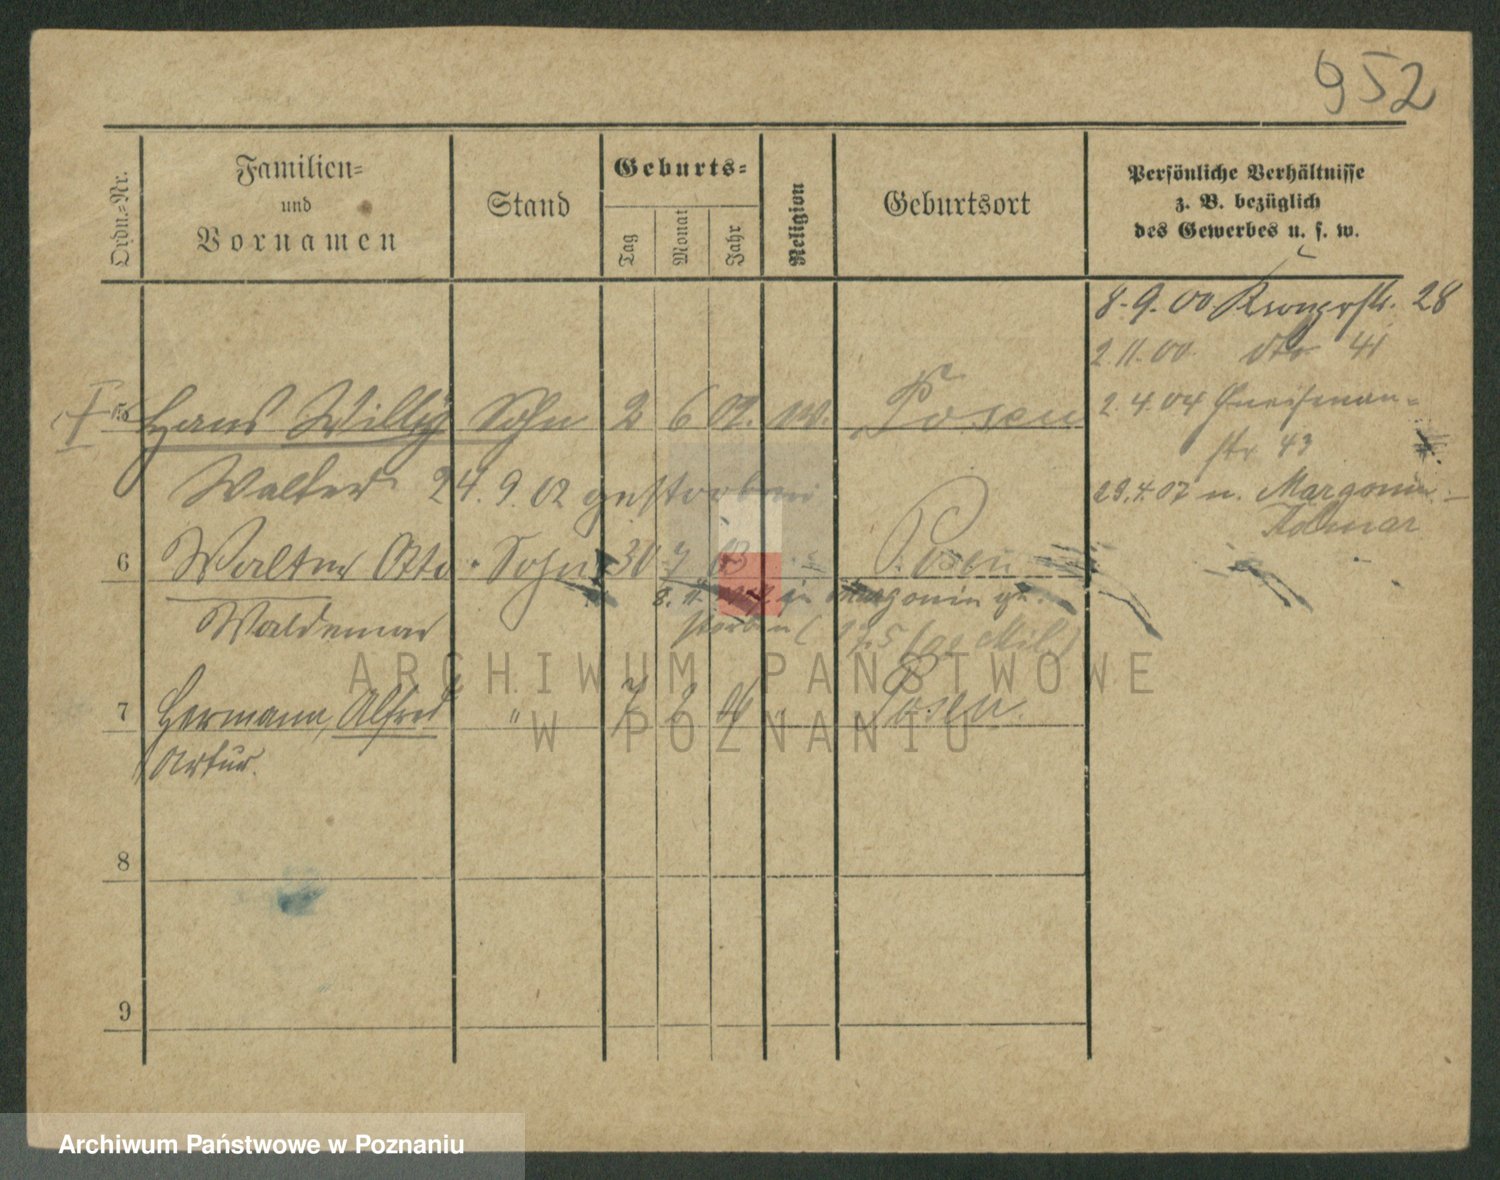 952
Ordn.-Nr.
Familien-
und
Vornamen
Stand
Geburts-
Tag
Monat
Jahr
Religion
Geburtsort
Persönliche Verhältnisse
z. B. bezüglich
des Gewerbes u. s. w.
8.9.00. 28
2.11.00. dto 41
5 Hans Willy Sohn 2 6 02. ev. Posen
2.4.04 Gneisenau-
str 43
Walter 24.9.02 gestorben
29.4.07 n. Margonin
Kolmar
6 Walter Otto Sohn 30 03 Posen
8. in Margonin ge-
storben (
Waldemar
7 Hermann, Alfred " 7 Posen.
Artur.
8
9
ARCHIWUM PAŃSTWOWE
W POZNANIU
Archiwum Państwowe w Poznaniu